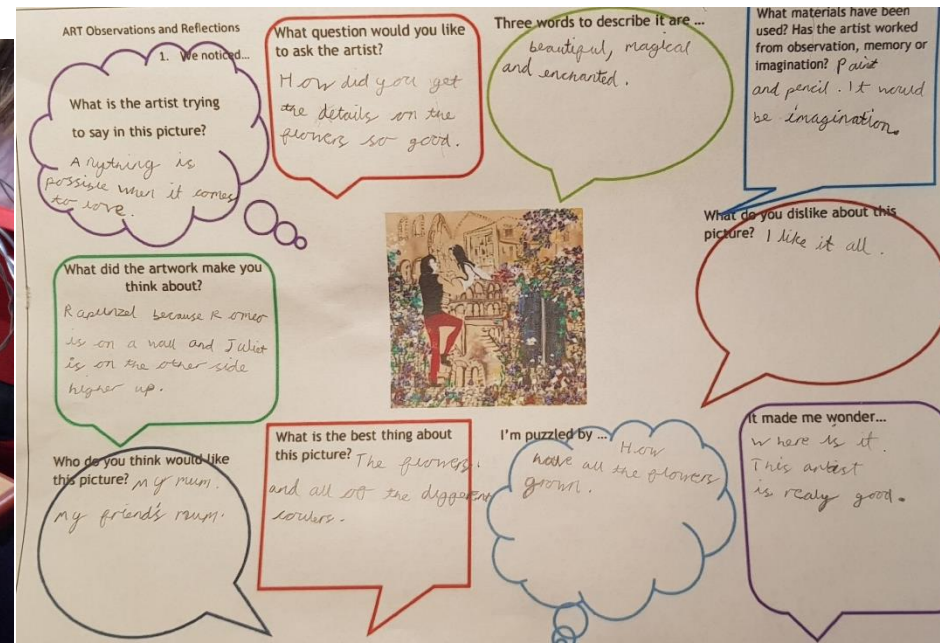 ART Observations and Reflections
1. We noticed...
What is the artist trying
to say in this picture?
Anything is
possible when it comes
to love.
What question would you like
to ask the artist?
How did you get
the details on the
flowers so good.
Three words to describe it are ...
beautiful, magical
and enchanted.
What materials have been
used? Has the artist worked
from observation, memory or
imagination? Paint
and pencil. It would
be imagination.
What did the artwork make you
think about?
Rapunzel because Romeo
is on a wall and Juliet
is on the other side
higher up.
What do you dislike about this
picture? I like it all.
Who do you think would like
this picture? My mum.
my friend's mum.
What is the best thing about
this picture? The flowers.
and all off the different
coulers.
I'm puzzled by ... How
have all the flowers
grown.
It made me wonder...
where is it.
This artist
is realy good.